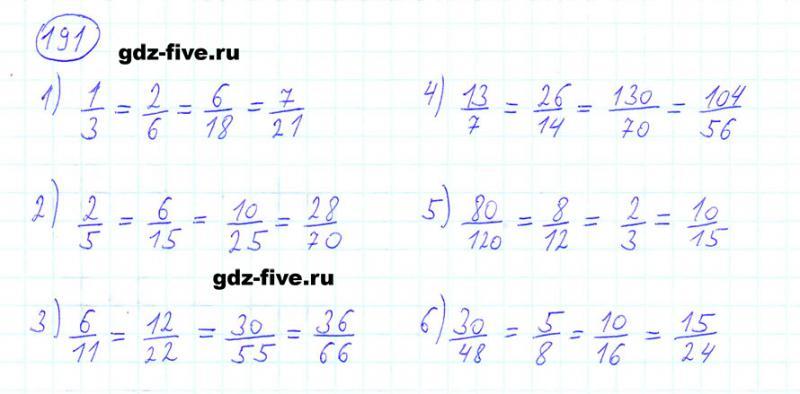 191
gdz-five.ru
1) 1/3 = 2/6 = 6/18 = 7/21
4) 13/7 = 26/14 = 130/70 = 104/56
2) 2/5 = 6/15 = 10/25 = 28/70
5) 80/120 = 8/12 = 2/3 = 10/15
gdz-five.ru
3) 6/11 = 12/22 = 30/55 = 36/66
6) 30/48 = 5/8 = 10/16 = 15/24